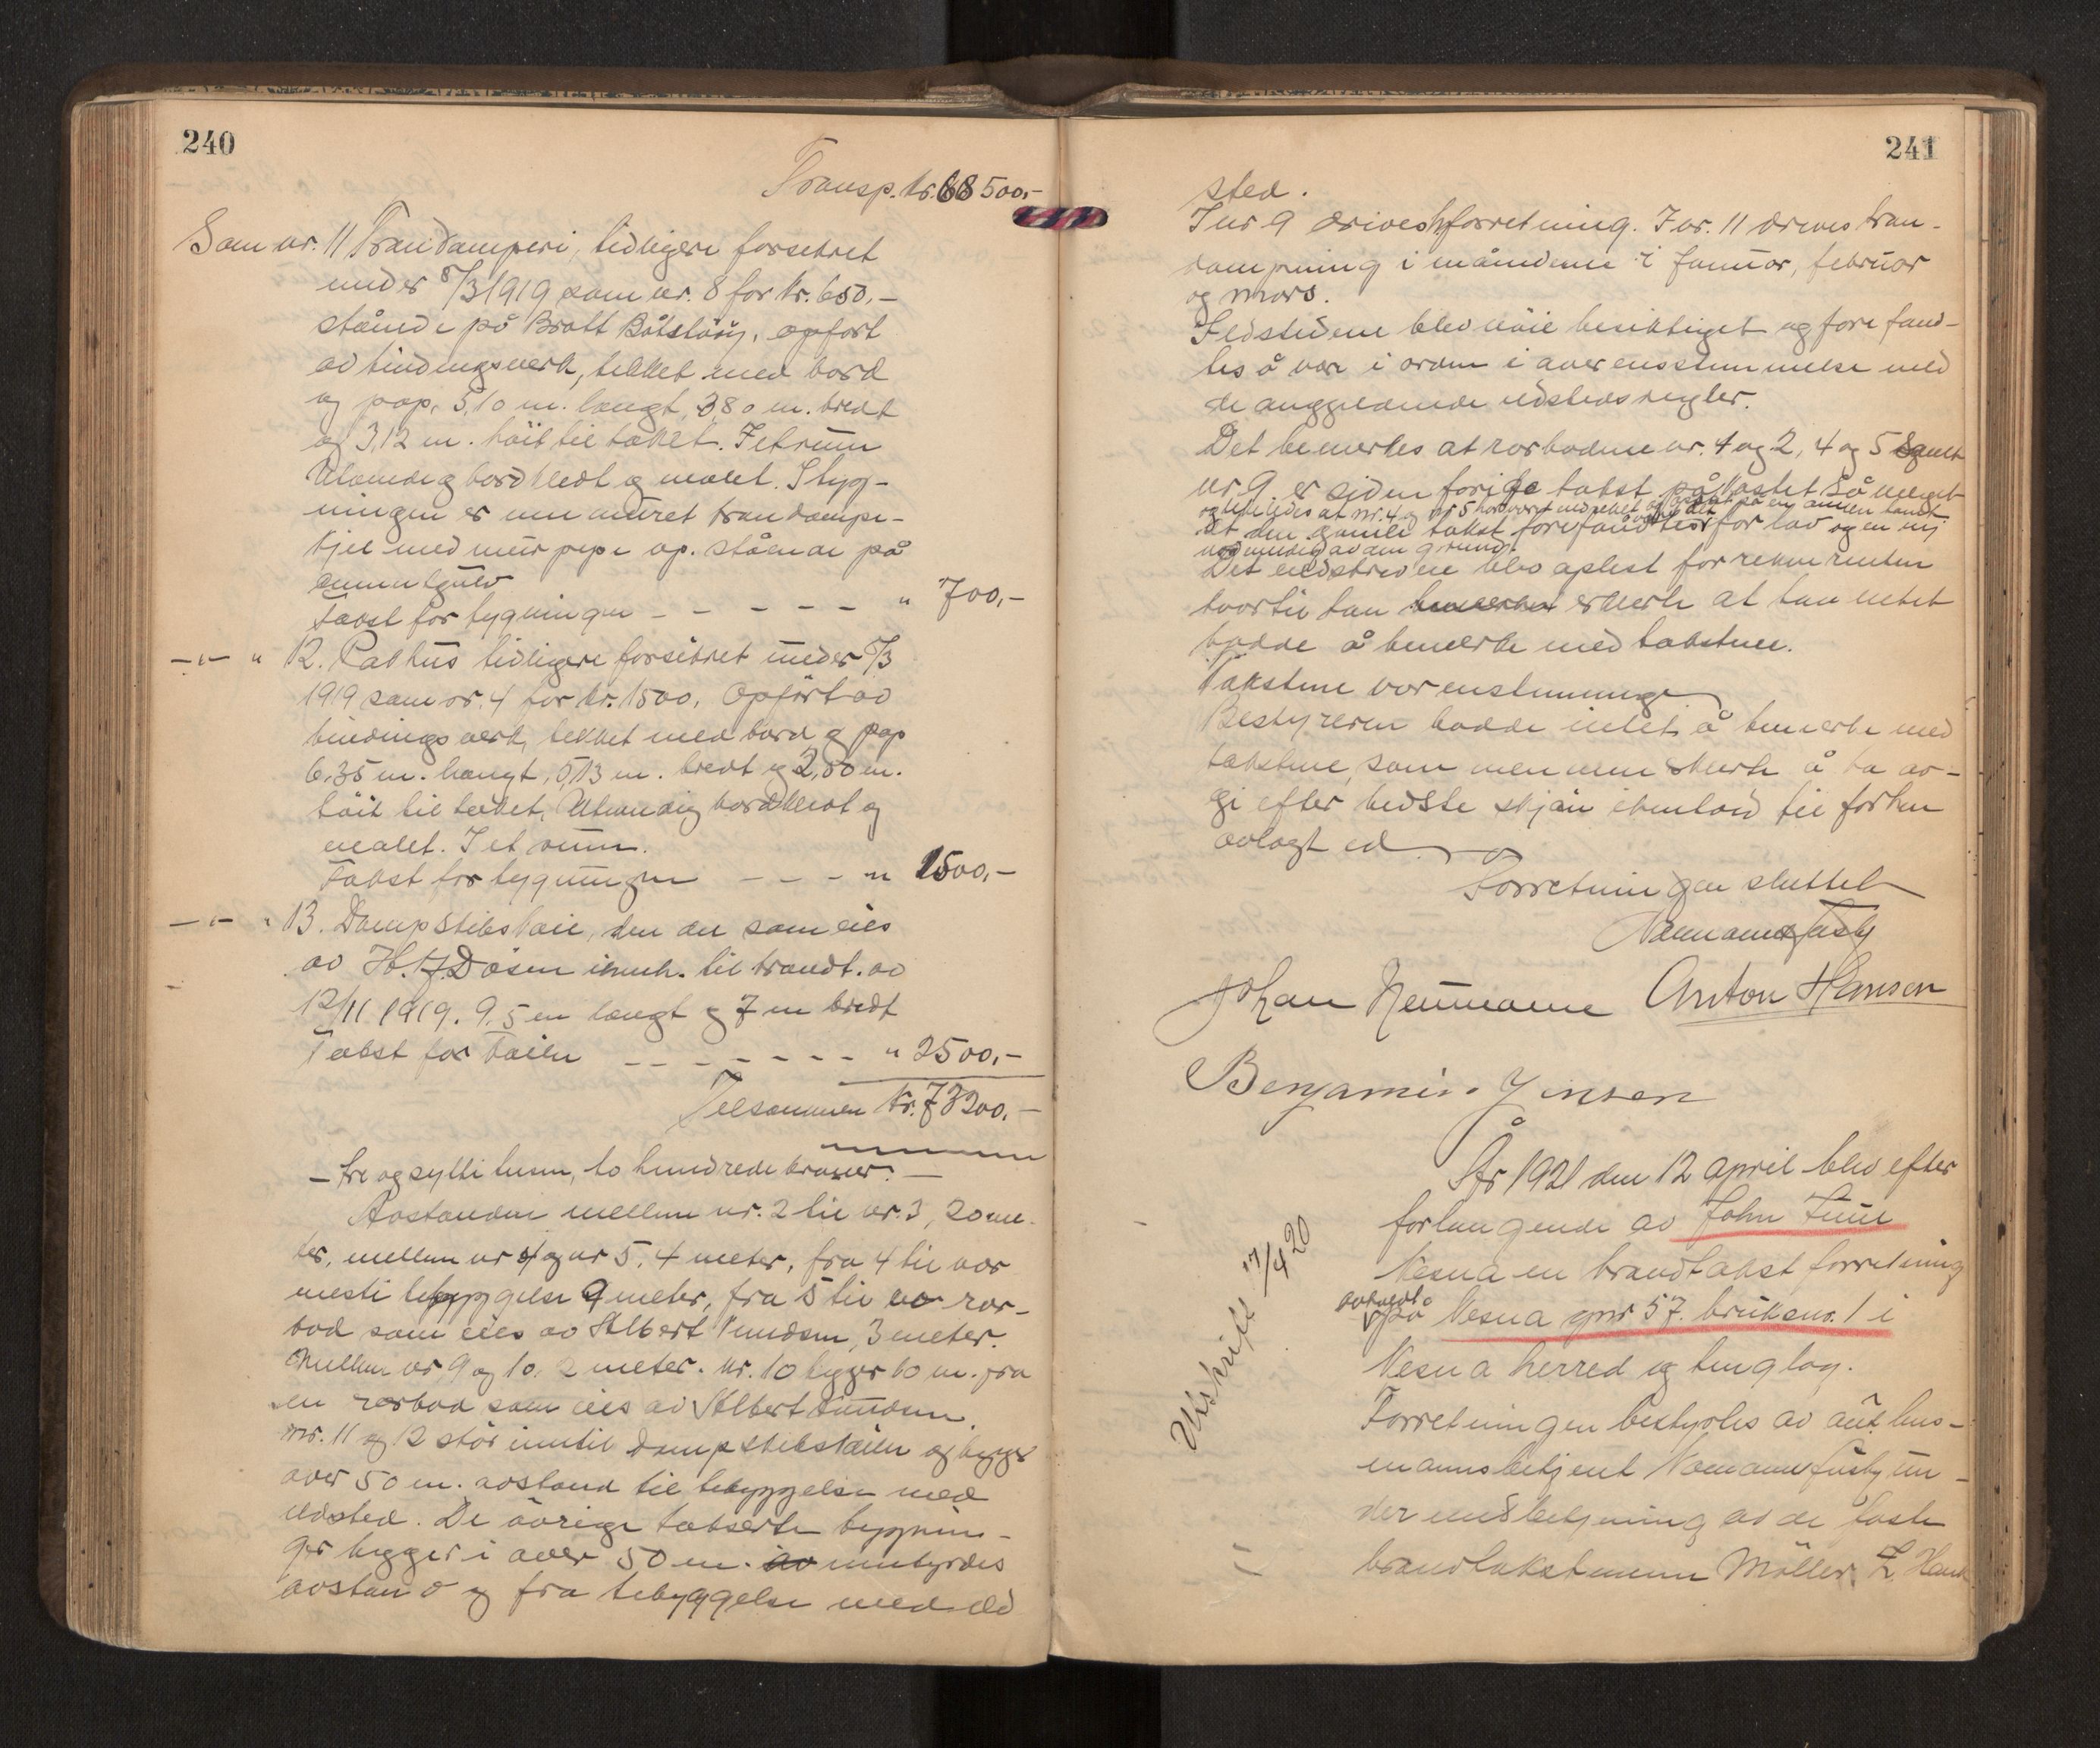 240
Transp. kr. 68 500,-
Som nr. 11 Trandamperi, tidligere forsikret
under 8/3 1919 som nr. 8 for kr. 650,-
stående på Bratt Båtstøen, opført
av bindingsverk, tekket med bord
og pap, 5,10 m. langt, 3,80 m. bredt
og 3,12 m. høit til taket. I et rum
Utvendig bordklædt og malet. I byg-
ningen er inn muret trandampe-
kjel med mur pipe op. stående på
sementgulv
Takst for bygningen - - - - - " 700,-
-"- " 12. Pakhus tidligere forsikret under 8/3
1919 som nr. 4 for kr. 1500, Opført av
bindingsverk, tekket med bord og pap
6,35 m. langt, 5,13 m. bredt og 2,80 m.
høit til taket, Utvendig bordklædt og
malet. I et rum.
Takst for bygningen - - - " 1500,-
-"- " 13. Dampskibskaie, den del som eies
av H. J. Døsen innh. til brandt. av
12/11 1919. 9,5 m langt og 7 m bredt
Takst for kaien - - - - - - - " 2500,-
Tilsammen kr. 73200,-
- tre og sytti tusen, to hundrede kroner. -
Avstanden mellem nr. 2 til nr. 3, 20 me-
ter, mellem nr 4 og nr 5, 4 meter, fra 4 til nær
meste bebyggelse 9 meter, fra 5 til ror-
bod som eies av Albert Knudsen, 3 meter.
Mellem nr 9 og 10, 2 meter. Nr. 10 ligger 10 m. fra
en rorbod som eies av Albert Knudsen.
nr. 11 og 12 står inntil dampskibskaien og ligger
over 50 m. avstand til bebyggelse med
ildsted. De øvrige takserte bygnin-
ger ligger i over 50 m. innbyrdes
avstand og fra bebyggelse med ild
241
sted.
I nr 9 drives forretning. I nr. 11 drives tran-
dampning i månedene i januar, februar
og mars.
Ildstedene blev nøie besiktiget og fore fand-
tes å være i orden i overensstemmelse med
de anggjeldende ildstedsregler.
Det bemerkes at rorbodene nr. 1 og 2, 4 og 5 samt
nr 9 er siden forige takst påkostet så meget
og likeledes at nr. 4 og nr 5 har været nedrevet og opsat på en annen tomt
at den gamle takst forefandtes for lav og en ny
nødvendig av den grund.
Det nedskrevne blev oplest for rekvirenten
hvortil han erklærte at han intet
hadde å bemerke med takstene.
Takstene var enstemmige
Bestyreren hadde intet å bemerke med
takstene, som mennene erklærte å ha av-
gi efter bedste skjøn i henhold til forhen
avlagt ed
Forretningen sluttet
Normann Husby
Johan Neumann Anton Hansen
Benjamin Jensen
År 1921 den 12 april blev efter
forlangende av John Zeiner
Nesna en brandtakst forretning
avholdt
på Nesna gnr 57. bruksnr. 1 i
Nesna herred og tinglag.
Utskrift 17/4 20
Forretningen bestyrtes av aut. lens-
mannsbetjent Normann Husby un-
der medbetjening av de faste
brandtakstmenn Møller, Z. Hans